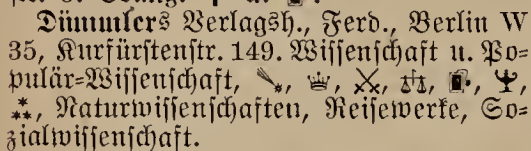 Dümmlers Verlagsh., Ferd., Berlin W
35, Kurfürstenstr. 149. Wissenschaft u. Po=
pulär=Wissenschaft, ☄, ♕, ⚔, ⚖, , ,
⁂, Naturwissenschaften, Reisewerke, So=
zialwissenschaft.